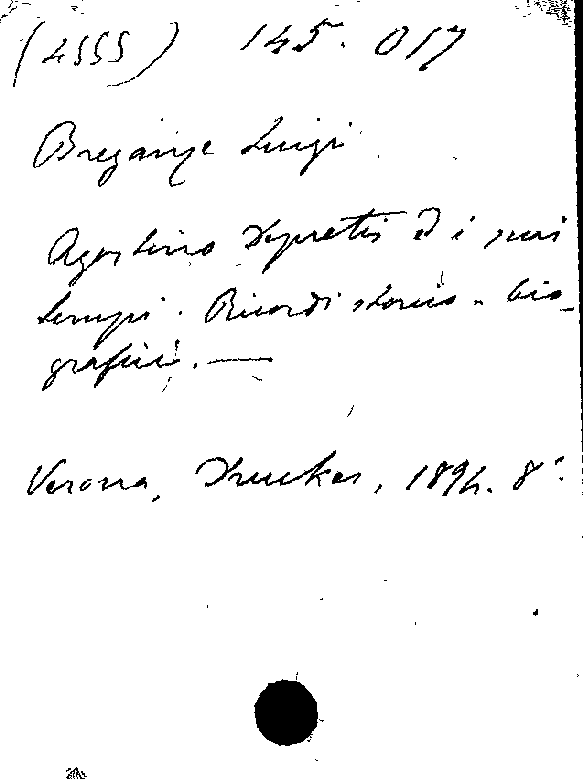 (4555) 145. 017
Breganze Luigi
Agostino Depretis ed i suoi
tempi. Ricordi storico-bio-
grafici. —
Verona, Drucker, 1894. 8°.